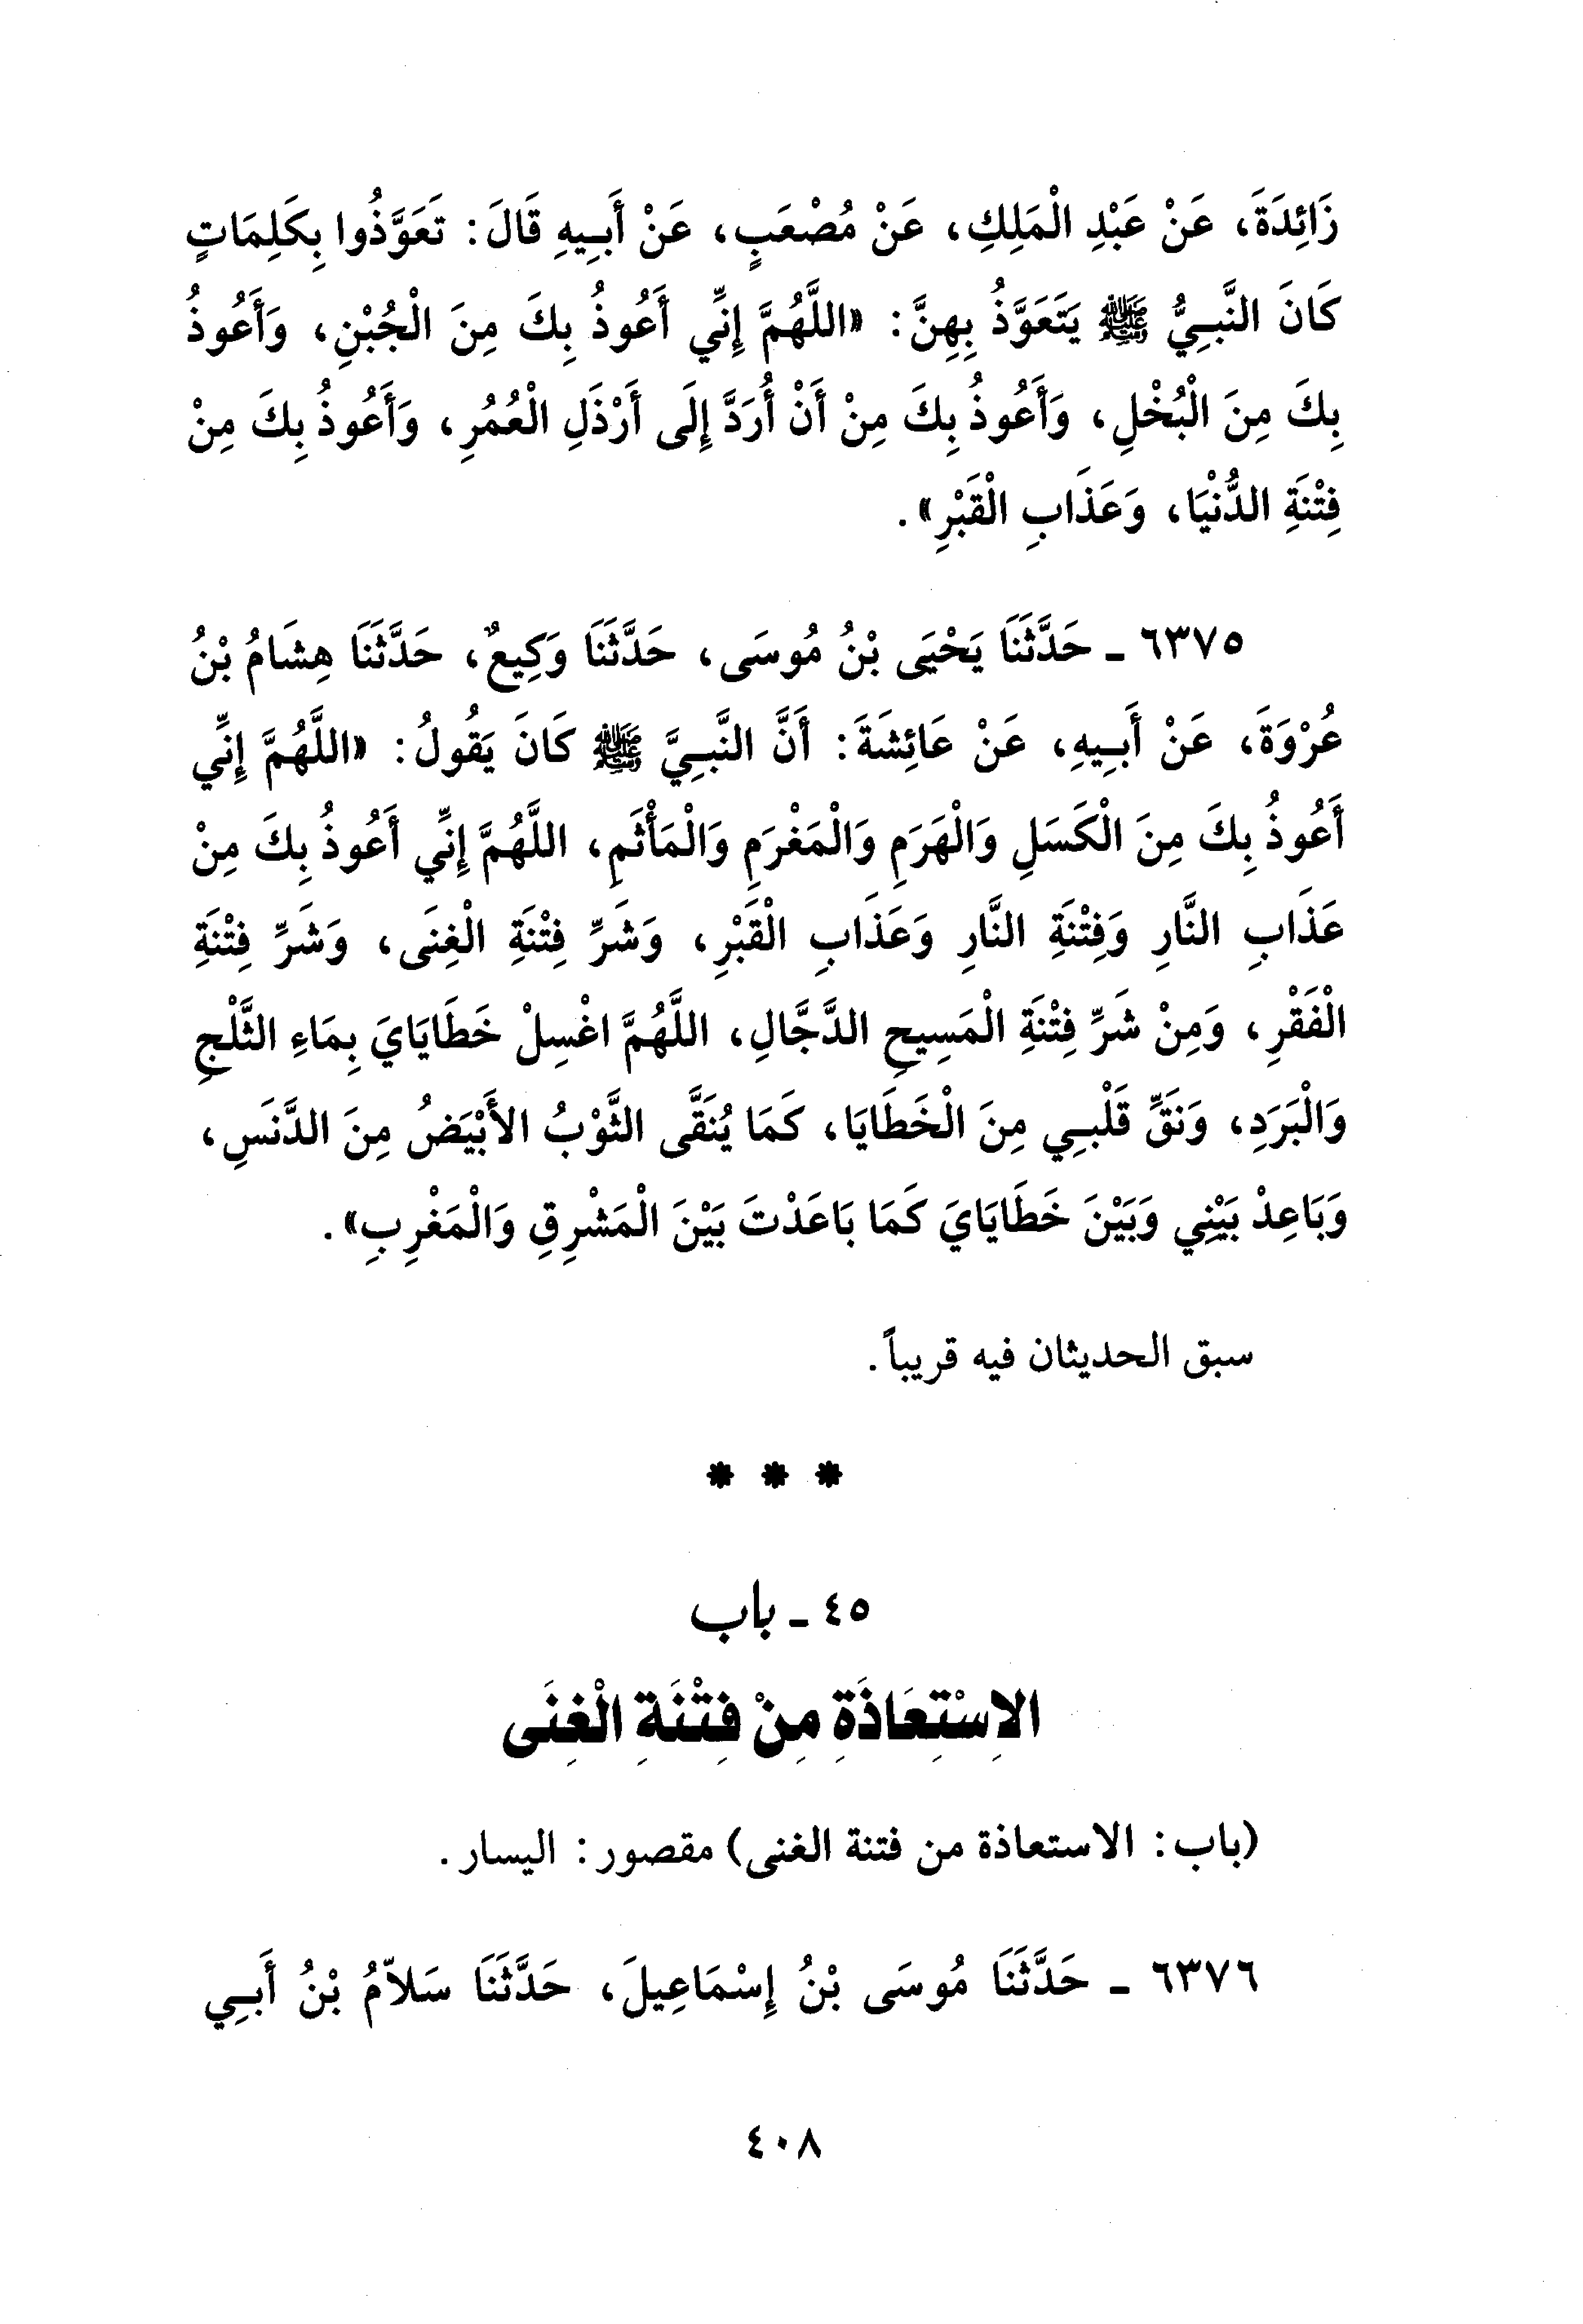 زَائِدَةَ، عَنْ عَبْدِ الْمَلِكِ، عَنْ مُصْعَبٍ، عَنْ أَبِيهِ قَالَ: تَعَوَّذُوا بِكَلِمَاتٍ
كَانَ النَّبِيُّ ﷺ يَتَعَوَّذُ بِهِنَّ: «اللَّهُمَّ إِنِّي أَعُوذُ بِكَ مِنَ الْجُبْنِ، وَأَعُوذُ
بِكَ مِنَ الْبُخْلِ، وَأَعُوذُ بِكَ مِنْ أَنْ أُرَدَّ إِلَى أَرْذَلِ الْعُمُرِ، وَأَعُوذُ بِكَ مِنْ
فِتْنَةِ الدُّنْيَا، وَعَذَابِ الْقَبْرِ».
٦٣٧٥ - حَدَّثَنَا يَحْيَى بْنُ مُوسَى، حَدَّثَنَا وَكِيعٌ، حَدَّثَنَا هِشَامُ بْنُ
عُرْوَةَ، عَنْ أَبِيهِ، عَنْ عَائِشَةَ: أَنَّ النَّبِيَّ ﷺ كَانَ يَقُولُ: «اللَّهُمَّ إِنِّي
أَعُوذُ بِكَ مِنَ الْكَسَلِ وَالْهَرَمِ وَالْمَغْرَمِ وَالْمَأْثَمِ، اللَّهُمَّ إِنِّي أَعُوذُ بِكَ مِنْ
عَذَابِ النَّارِ وَفِتْنَةِ النَّارِ وَعَذَابِ الْقَبْرِ، وَشَرِّ فِتْنَةِ الْغِنَى، وَشَرِّ فِتْنَةِ
الْفَقْرِ، وَمِنْ شَرِّ فِتْنَةِ الْمَسِيحِ الدَّجَّالِ، اللَّهُمَّ اغْسِلْ خَطَايَايَ بِمَاءِ الثَّلْجِ
وَالْبَرَدِ، وَنَقِّ قَلْبِي مِنَ الْخَطَايَا، كَمَا يُنَقَّى الثَّوْبُ الأَبْيَضُ مِنَ الدَّنَسِ،
وَبَاعِدْ بَيْنِي وَبَيْنَ خَطَايَايَ كَمَا بَاعَدْتَ بَيْنَ الْمَشْرِقِ وَالْمَغْرِبِ».
سبق الحديثان فيه قريباً.
* * *
٤٥ - باب
الاِسْتِعَاذَةِ مِنْ فِتْنَةِ الْغِنَى
(باب: الاستعاذة من فتنة الغنى) مقصور: اليسار.
٦٣٧٦ - حَدَّثَنَا مُوسَى بْنُ إِسْمَاعِيلَ، حَدَّثَنَا سَلاَّمُ بْنُ أَبِي
٤٠٨